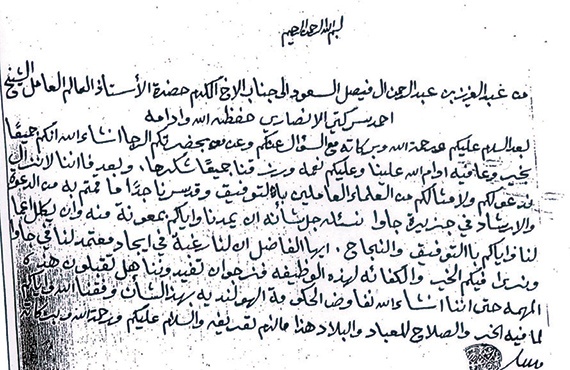 بسم الله الرحمن الرحيم
من عبد العزيز بن عبد الرحمن ال فيصل السعود الى جناب الاخ المكرم حضرة الأستاذ العالم العامل الشيخ
احمد سركتي الانصاري حفظه الله وادامه
بعد السلام عليكم ورحمة الله وبركاته مع السؤال عنكم وعن بحضرتكم الرجا انشاء الله انكم جميعًا
بخير وعافيه ادام الله علينا وعليكم نعمه ورزقنا جميعًا شكرها. وبعد فاننا لانزال
لكم ولامثالكم من العلماء العاملين باالتوفيق وقد سرنا جدًا ما قمتم به من الدعوة
والارشاد في جزيرة جاوا نسئله جل شأنه ان يمدنا واياكم بمعونة منه وان يكلل اعما
لنا واياكم باالتوفيق والنجاح. ايها الفاضل ان لنا رغبة في ايجاد معتمد لنا في جاوا
فيكم الخير والكفائه لهذه الوظيفه فنرجوا ان تفيدونا هل تقبلون هذه
المهمه حتى اننا انشاء الله نفاوض الحكومة الهولنديه بهذا الشأن وفقنا الله واياكم
لما فيه الخير والصلاح للعباد والبلاد هذا مالزم تعريفه والسلام عليكم ورحمة الله وبركاته